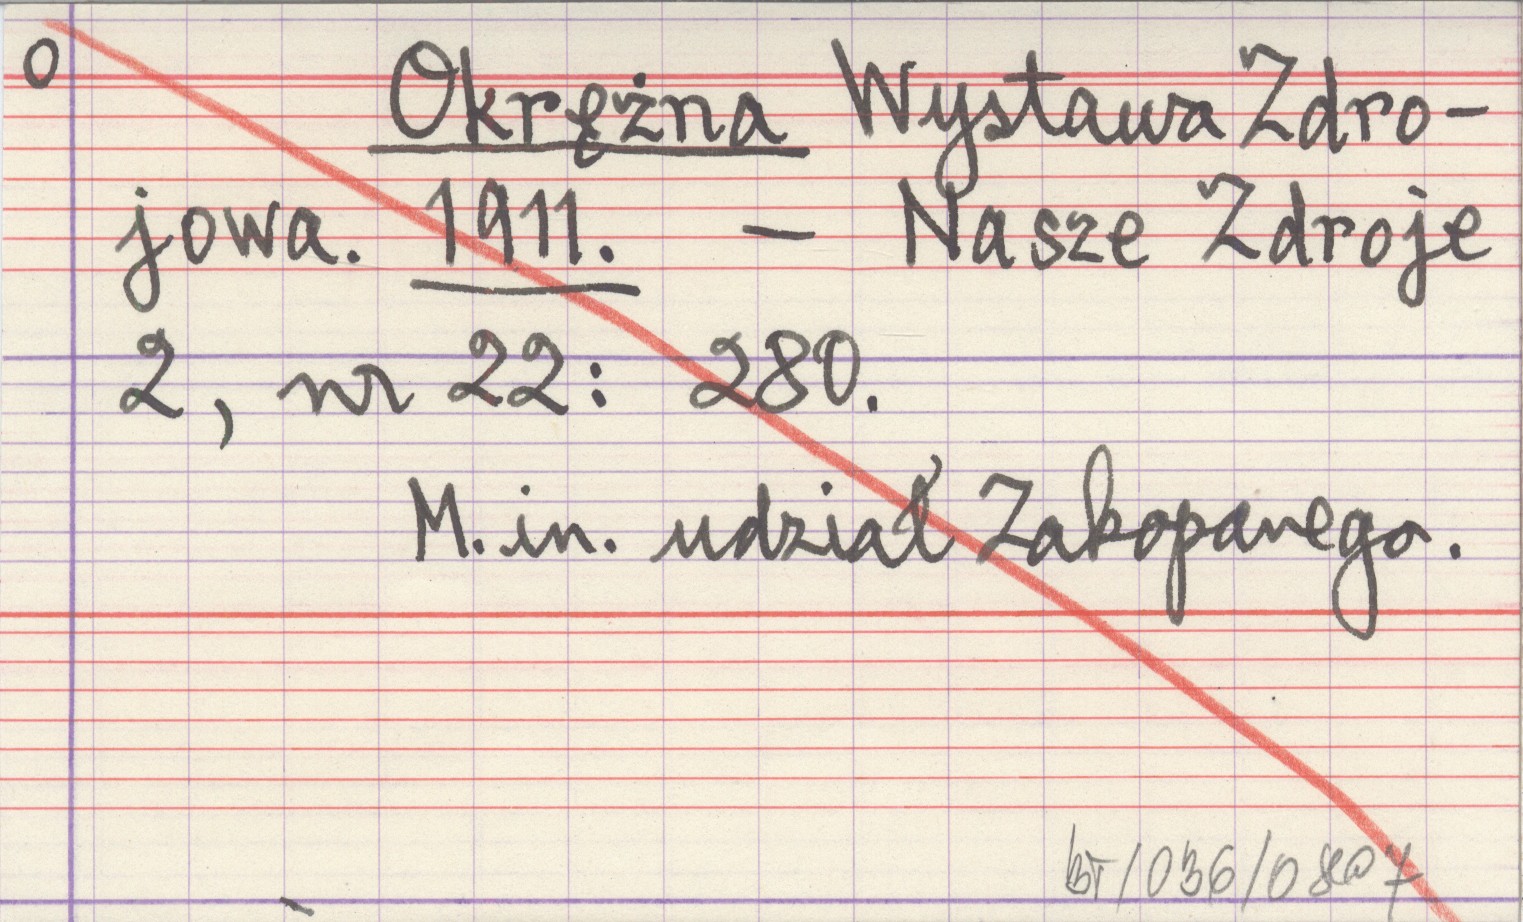 O
Okrężna Wystawa Zdro-
jowa. 1911. - Nasze Zdroje
2, nr 22: 280.
M.in. udział Zakopanego.
BT/036/0